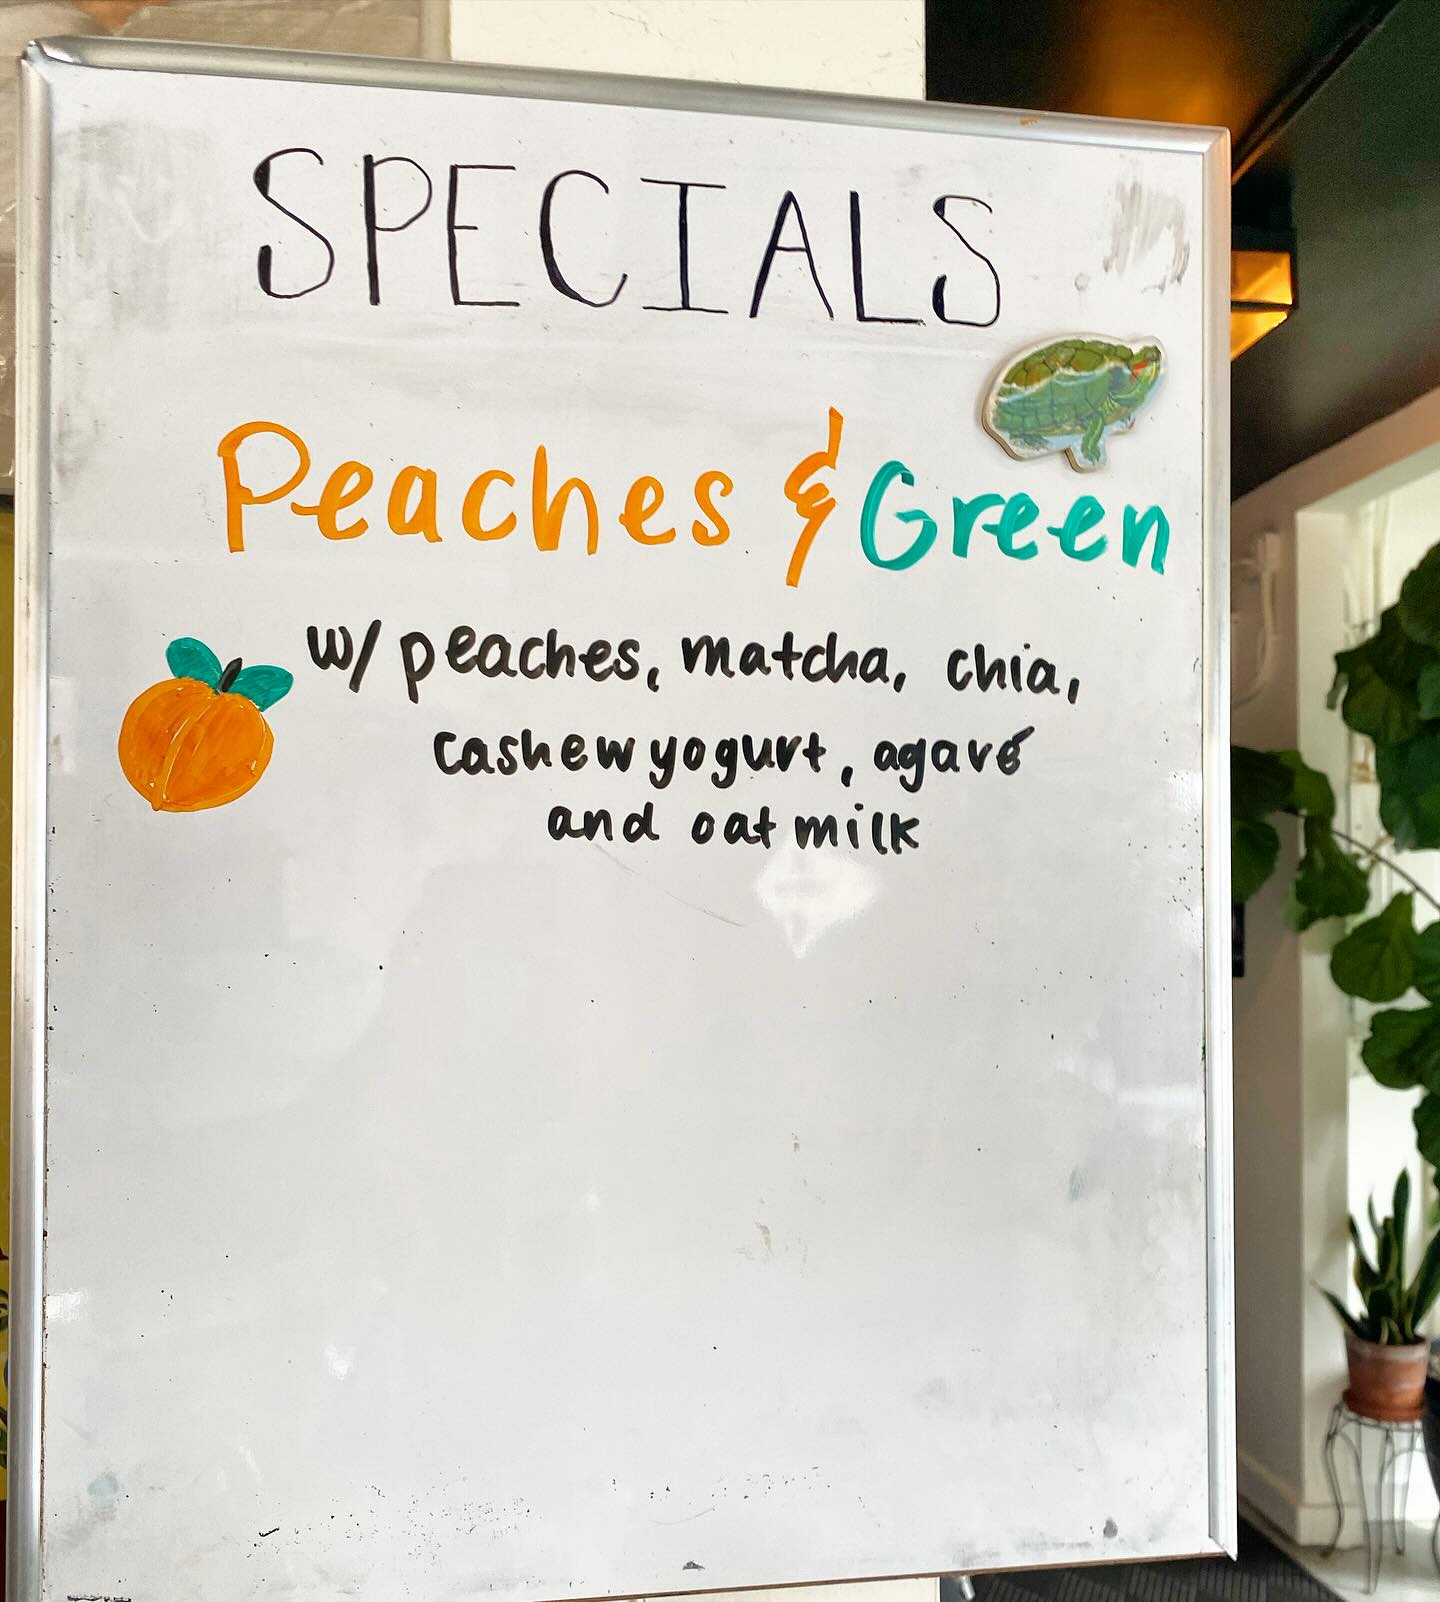 SPECIALS
Peaches & Green
w/ peaches, matcha, chia,
cashew yogurt, agavé
and oat milk